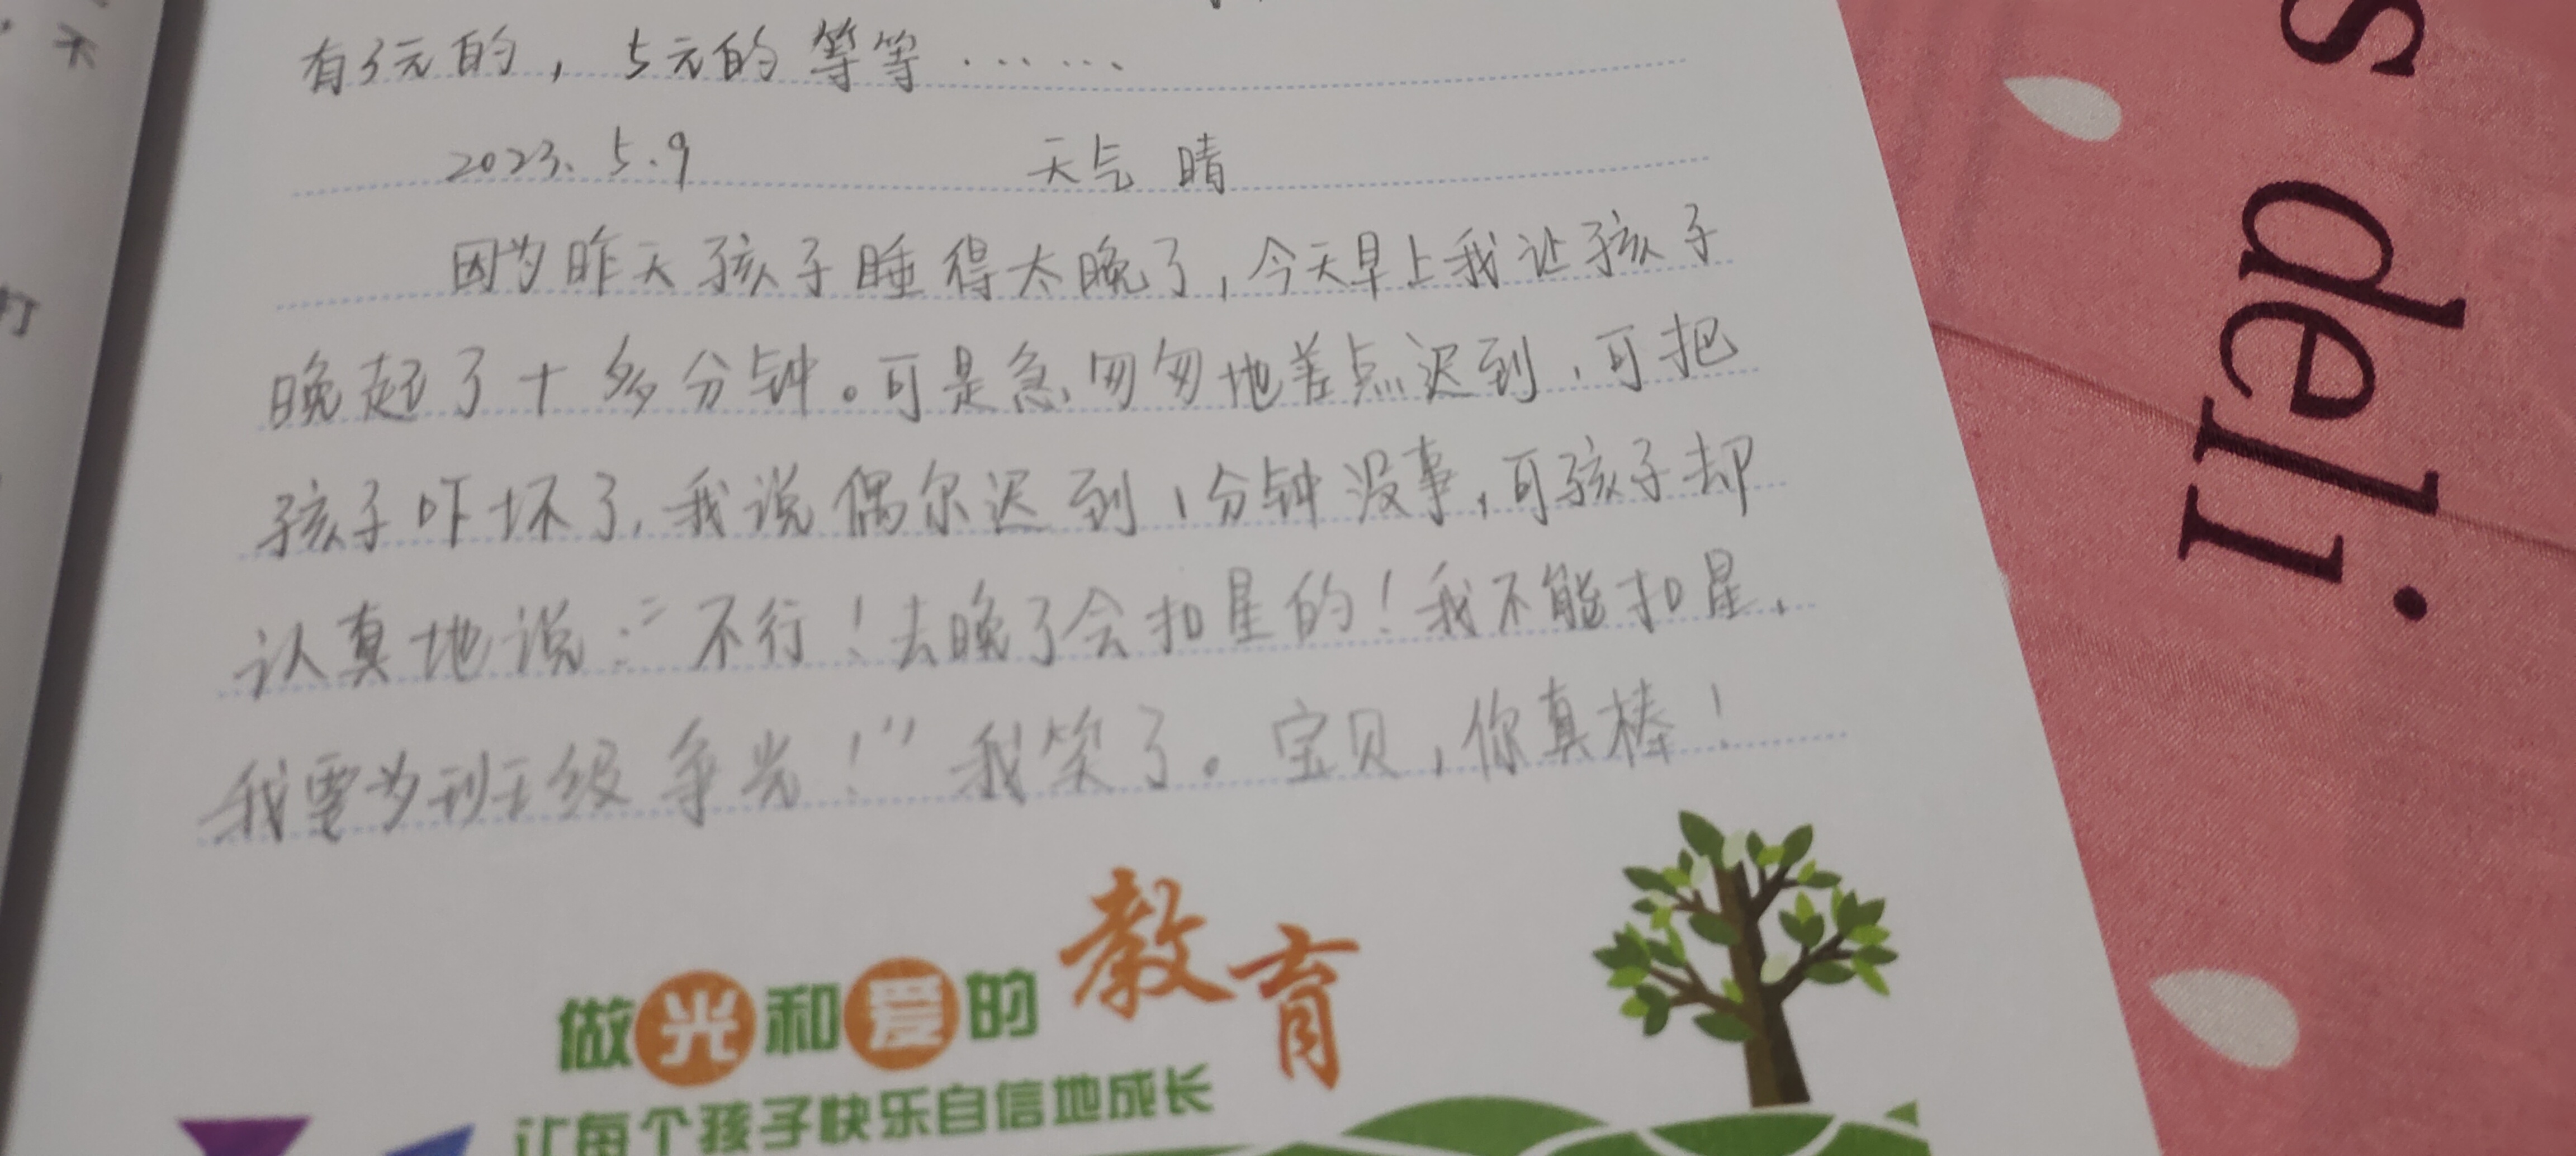 不
打
有3元的，5元的等等……
2023.5.9 天气 晴
因为昨天孩子睡得太晚了，今天早上我让孩子
晚起了十多分钟。可是急匆匆地差点迟到，可把
孩子吓坏了，我说偶尔迟到1分钟没事，可孩子却
认真地说：“不行！去晚了会扣星的！我不能扣星，
我要为班级争光！”我笑了。宝贝，你真棒！
做光和爱的教育
让每个孩子快乐自信地成长
s deli